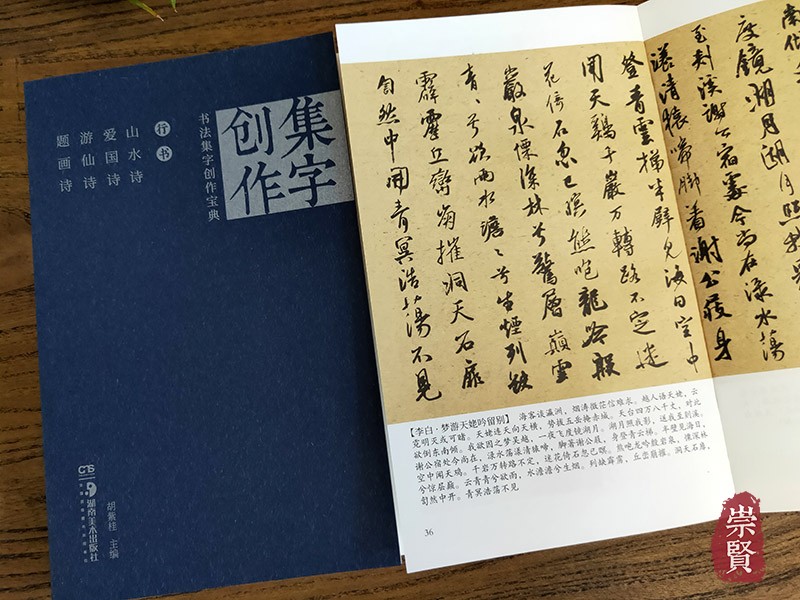 集字
创作
书法集字创作宝典
行书
山水诗
爱国诗
游仙诗
题画诗
湖南美术出版社
胡紫桂 主编
度鏡湖月湖月照我
至剡溪謝公宿處今尚在淥水蕩
漾清猿啼脚著謝公屐身
登青雲梯半壁見海日空中
聞天鷄千巖萬轉路不定迷
花倚石忽已暝熊咆龍吟殷
巖泉慄深林兮驚層巔雲
青、兮欲雨水澹、兮生煙列缺
霹靂丘巒崩摧洞天石扉
訇然中開青冥浩蕩不見
【李白·梦游天姥吟留别】 海客谈瀛洲，烟涛微茫信难求。越人语天姥，云
霓明灭或可睹。天姥连天向天横，势拔五岳掩赤城。天台四万八千丈，对此
欲倒东南倾。我欲因之梦吴越，一夜飞度镜湖月。湖月照我影，送我至剡溪。
谢公宿处今尚在，渌水荡漾清猿啼。脚著谢公屐，身登青云梯。半壁见海日，
空中闻天鸡。千岩万转路不定，迷花倚石忽已暝。熊咆龙吟殷岩泉，慄深林
兮惊层巅。云青青兮欲雨，水澹澹兮生烟。列缺霹雳，丘峦崩摧。洞天石扉，
訇然中开。青冥浩荡不见
36
崇賢